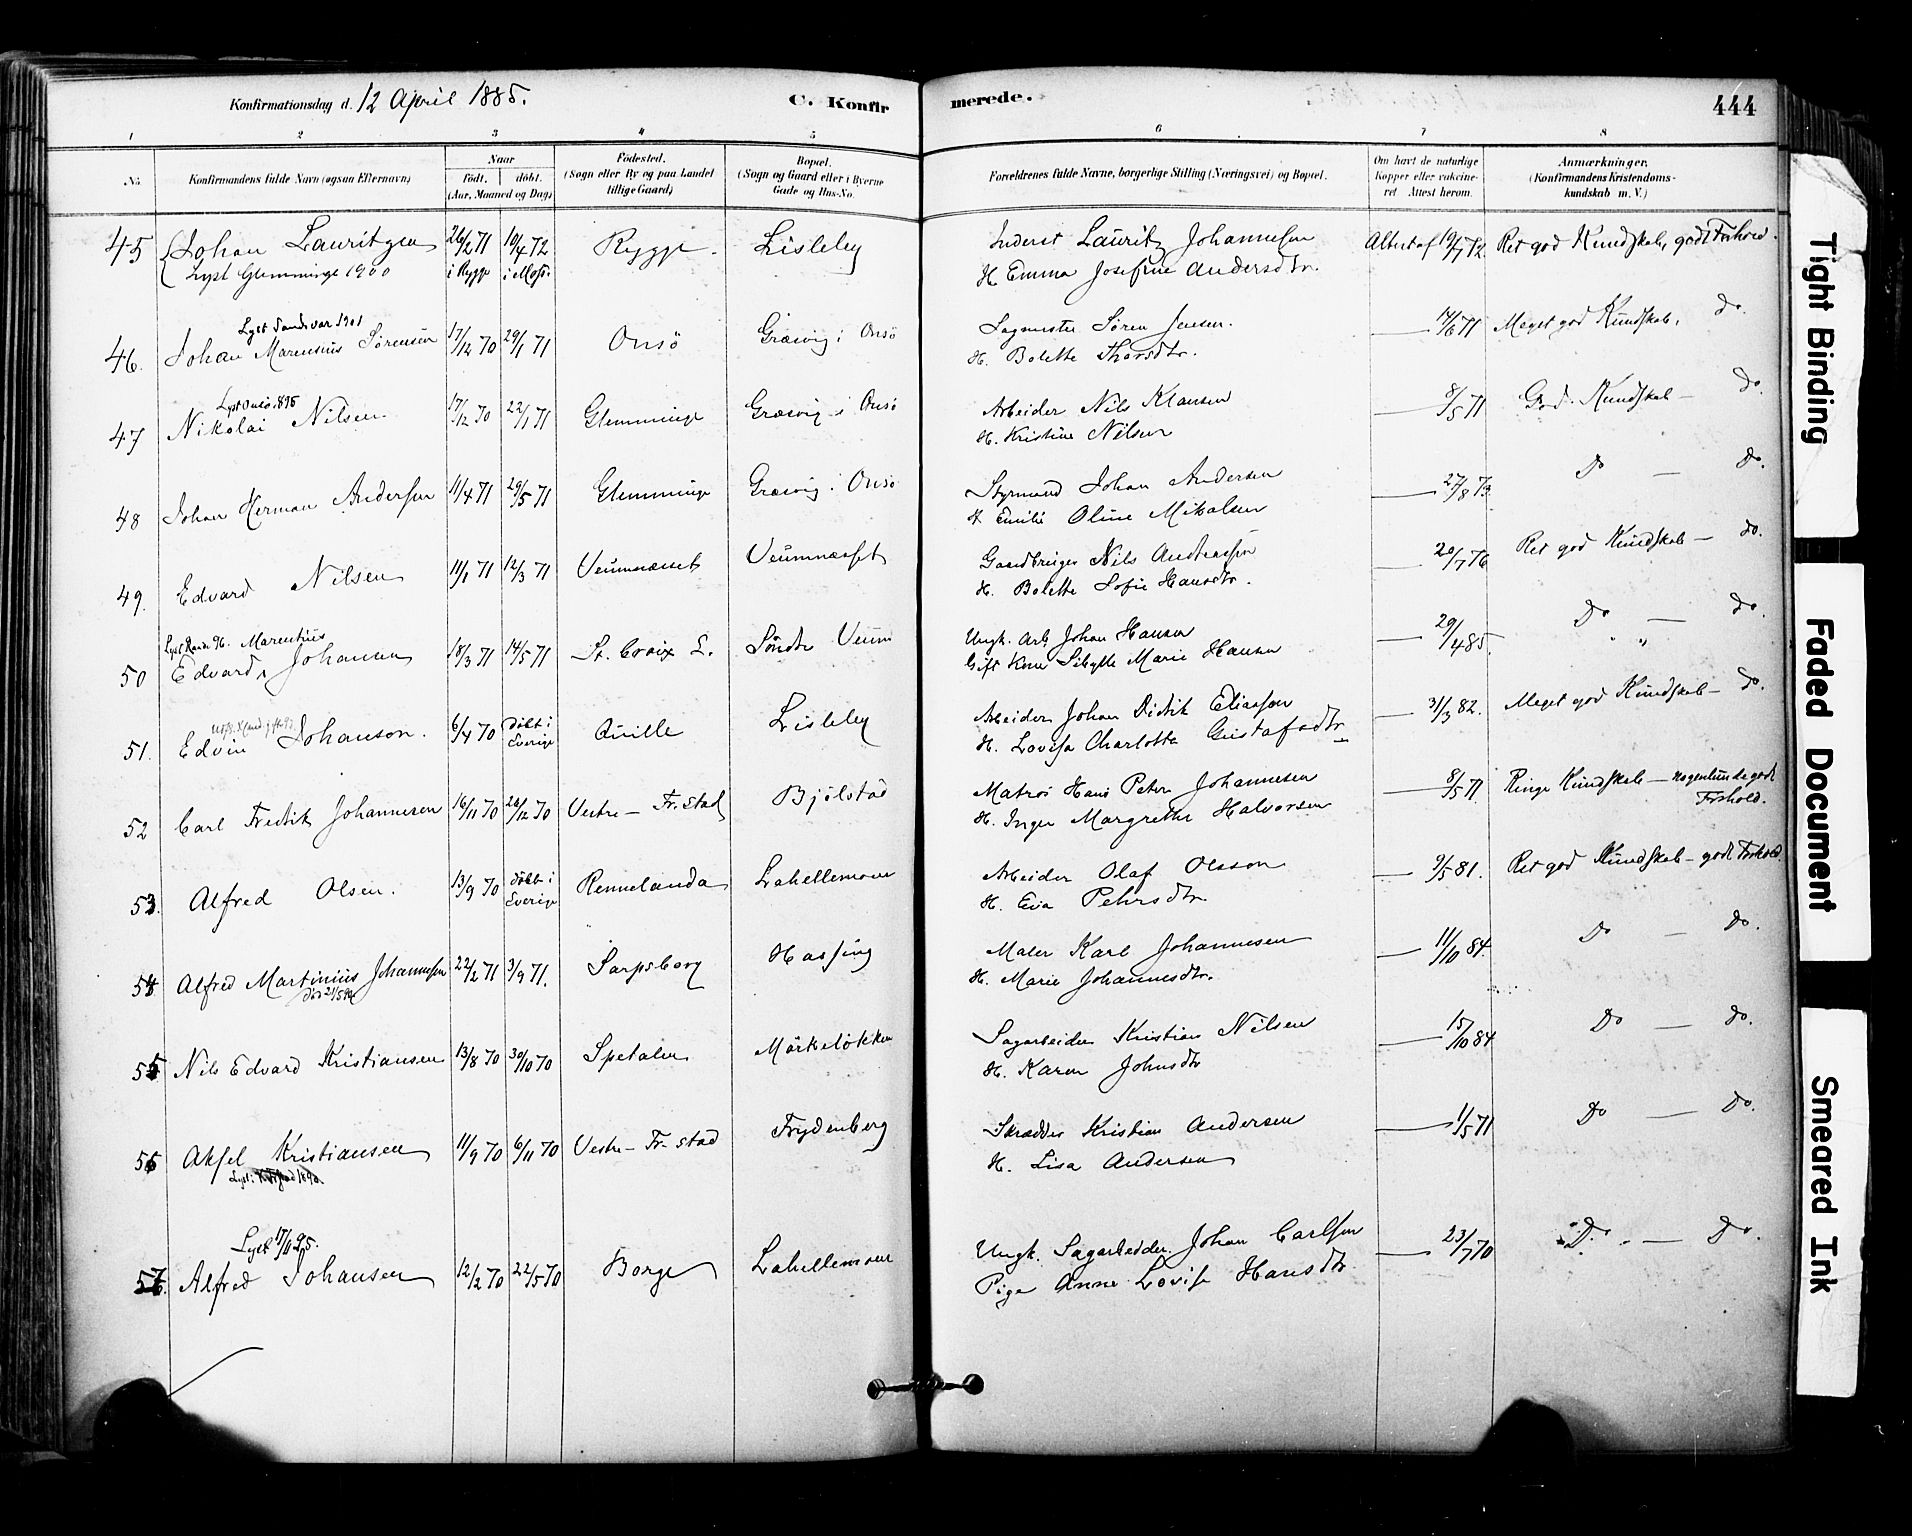 Konfirmationsdag d. 12 April 1885. C. Konfirmerede. 444
1 2 3 4 5 6 7 8
No. Konfirmandens fulde Navn (ogsaa Efternavn) Naar Født, døbt. (Aar, Maaned og Dag) Fødested. (Sogn eller By og paa Landet tillige Gaard) Bopæl. (Sogn og Gaard eller i Byerne Gade og Hus-No. Forældrenes fulde Navne, borgerlige Stilling (Næringsvei) og Bopæl. Om havt de naturlige Kopper eller vakcineret Attest herom. Anmærkninger. (Konfirmandens Kristendomskundskab m. V.)
45 Johan Lauritzen 26/2 71 10/4 72 Rygge Lisleby Inderst Lauritz Johannesen Attest af 19/7 72 Ret god Kundskab, godt Forhold.
Lyst Glemminge 1900 i Rygge i Moss. H. Emma Josefine Andersdtr.
Lyst Sandsvær 1901
46. Johan Marensius Sørensen 17/12 70 29/1 71 Onsö Græsvig i Onsö Sagmester Sören Jensen. — 14/6 71 Meget god Kundskab, do.
H. Bolette Thorsdtr.
Lyst Onsö 1895
47 Nikolai Nilsen 17/12 70 22/1 71 Glemminge Græsvig i Onsö Arbeider Nils Klausen — 8/5 71 God Kundskab — do.
H. Kristine Nilsen
48 Johan Herman Andersen 11/4 71 29/5 71 Glemminge Græsvig i Onsö Styrmand Johan Andersen — 27/8 73. Do — do.
H Emilie Oline Mikalsen
49. Edvard Nilsen 11/1 71 12/3 71 Veumnæsset Veumnæsset Gaardbruger Nils Andreassen — 20/7 76 Ret god Kundskab — do.
H. Bolette Sofie Hansdtr.
Marentius
50 Edvard Johansen 18/3 71 14/5 71 St. Croix S. Søndre Veum Ungk. Arb. Johan Hansen — 29/4 85. Do — do.
Gift Kone Sibylle Marie Hansen " "
51. Edvin Johanson. 6/4 70 Døbt i Sverige Quille Lisleby Arbeider Johan Didrik Eliasson — 31/3 82. Meget god Kundskab — do.
H. Lovisa Charlotte Gustafsdtr
52 Carl Fredrik Johannesen 16/11 70 26/12 70 Vestre — Fr.stad Bjölstad Matros Hans Peter Johannesen — 8/5 71. Ringe Kundskab — nogenlunde godt Forhold.
H. Inger Margrethe Halvorsen
53. Alfred Olsen. 13/9 70 døbt i Sverige Rennelanda Lahellemoen Arbeider Olaf Olsson — 9/5 81. Ret god Kundskab — godt Forhold.
H. Eva Pehrsdtr.
54 Alfred Martinius Johannesen 22/2 71 3/9 71. Sarpsborg Hassing Maler Karl Johannesen — 11/10 84. Do — do.
H. Marie Johannesdtr.
55 Nils Edvard Kristiansen 13/8 70 30/10 70 Spetalen Mörkelökken Sagarbeider Kristian Nilsen — 15/10 84 Do — do.
H. Karen Johnsdtr
56 Aksel Kristiansen 11/9 70 6/11 70 Vestre — Fr.stad Frydenberg Skrædder Kristian Andersen — 1/5 71 Do — Do.
H. Lisa Andersen
57. Alfred Johansen 12/2 70 22/5 70 Borge Lahellemoen Ungk. Sagarbeider Johan Carlsen — 23/7 70 Do. — Do.
Pige Anne Lovise Hansdtr
Tight Binding
Faded Document
Smeared Ink